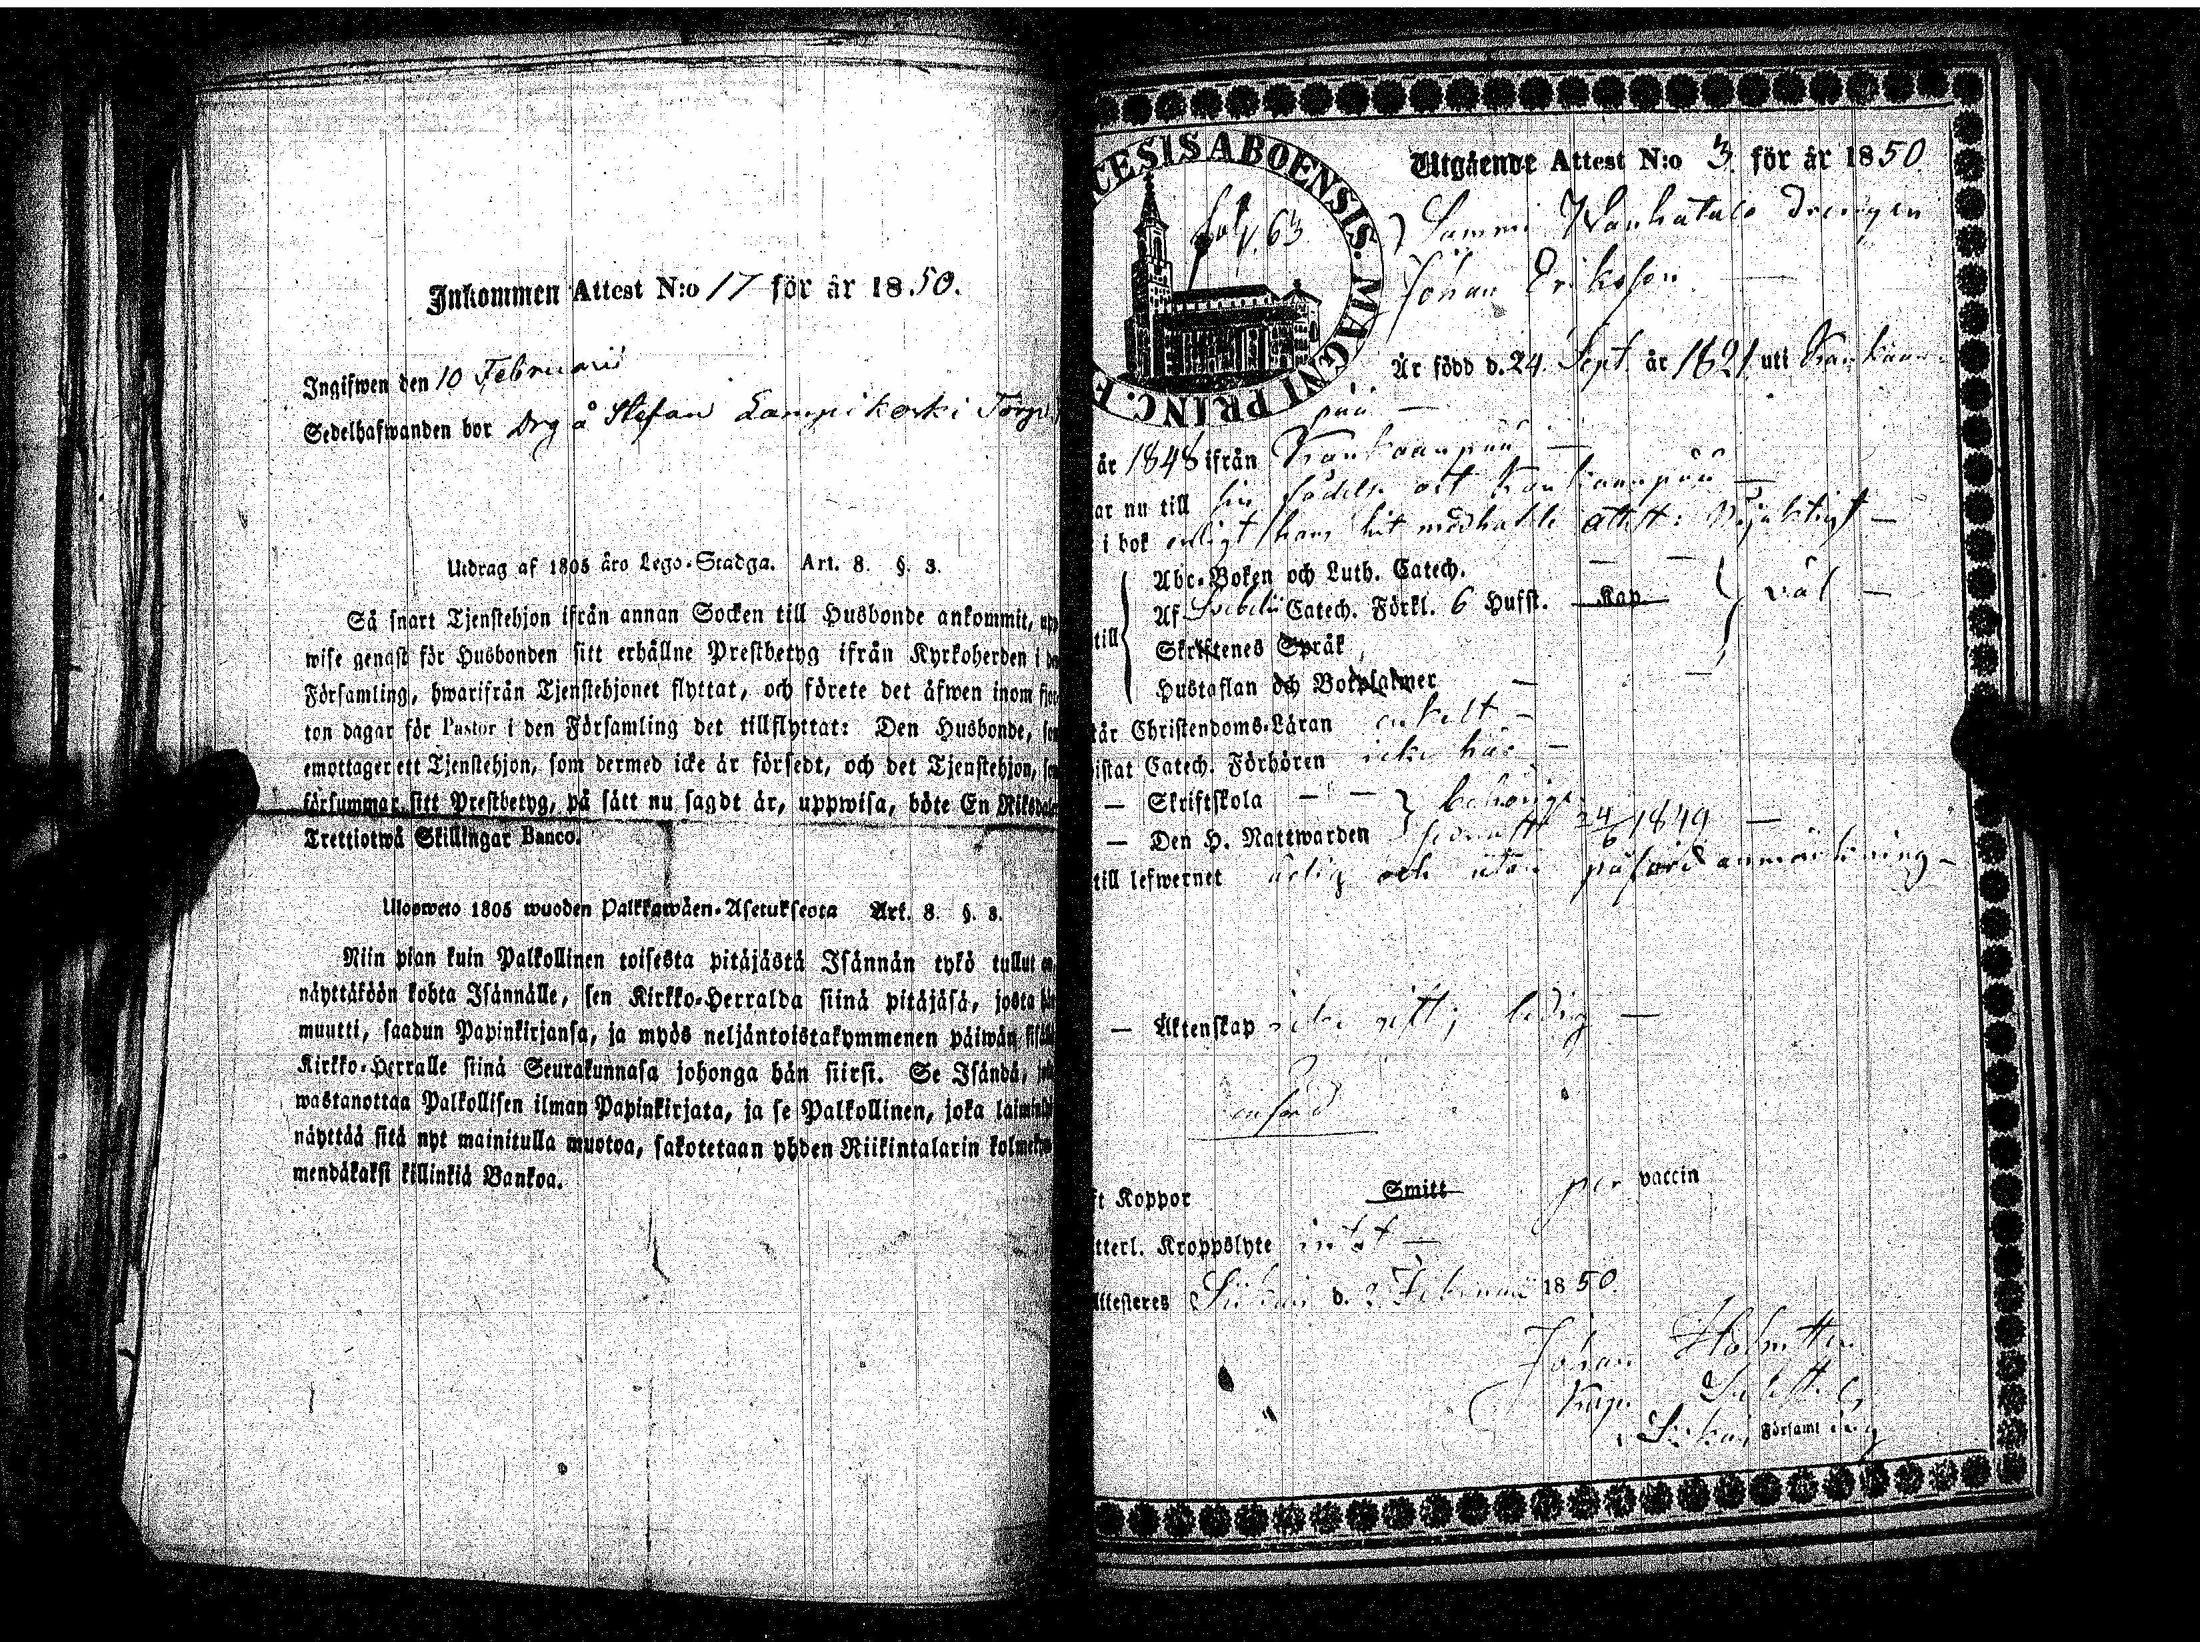 Inkommen Attest N:o 17 för år 1850.
Ingifwen den 10 Februarii
Sedelhafwanden bor Drg å Stefan Lampikoski Torp
Utdrag af 1805 års Lego-Stadga. Art. 8. §. 3.
Så snart Tjenstehjon ifrån annan Socken till Husbonde ankommit, upp
wise genast för Husbonden sitt erhållne Prestbetyg ifrån Kyrkoherden i
Församling, hwarifrån Tjenstehjonet flyttat, och förete det äfwen inom fjor
ton dagar för Pastor i den Församling det tillflyttat: Den Husbonde, som
emottager ett Tjenstehjon, som dermed icke är försedt, och det Tjenstehjon, som
försummar sitt Prestbetyg, på sätt nu sagdt är, uppwisa, böte En Riksdaler
Trettiotwå Skillingar Banco.
Ulosweto 1805 wuoden Palkkawäen-Asetuksesta Art. 8. §. 3.
Niin pian kuin Palkollinen toisesta pitäjästä Isännän tykö tullut on,
näyttäköön kohta Isännälle, sen Kirkko-Herralda siinä pitäjäsä, josta hän
muutti, saadun Papinkirjansa, ja myös neljäntoistakymmenen päiwän sisällä
Kirkko-Herralle siinä Seurakunnasa johonga hän siirsi. Se Isändä, joka
wastanottaa Palkollisen ilman Papinkirjata, ja se Palkollinen, joka laiminlyö
näyttää sitä nyt mainitulla muotoa, sakotetaan yhden Riikintalarin kolmekym
mendäkaksi killinkiä Bankoa.
CESIS ABOENSIS. MAGNI PRINC. F
fol. 63
Utgående Attest N:o 3. för år 1850
Sammi Wanhatalo drengen
Johan Eriksson
Är född d. 24 Sept. år 1821. uti Kankaan-
pää —
år 1848 ifrån Kankaanpää —
ar nu till sin födelse ort Kankaanpää —
i bok enligt hans hit medhafde attest:
Abc-Boken och Luth. Catech.
Af Svebelii Catech. Förkl. 6 Hufst. Kap väl —
till
Skriftenes Språk
Hustaflan och Botpsalmer
tår Christendoms-Läran enkelt —
istat Catech. Förhören icke här —
— Skriftskola behörigt
— Den H. Nattwarden 24/6 1849 —
till lefwernet ärlig och utan påförd anmärkning —
— Äktenskap icke gift; ledig —
ft Koppor Smitt per vaccin
tterl. Kroppslyte intet —
Attesteres d. 2 Februarii 1850.
Johan
Kap.
Församling